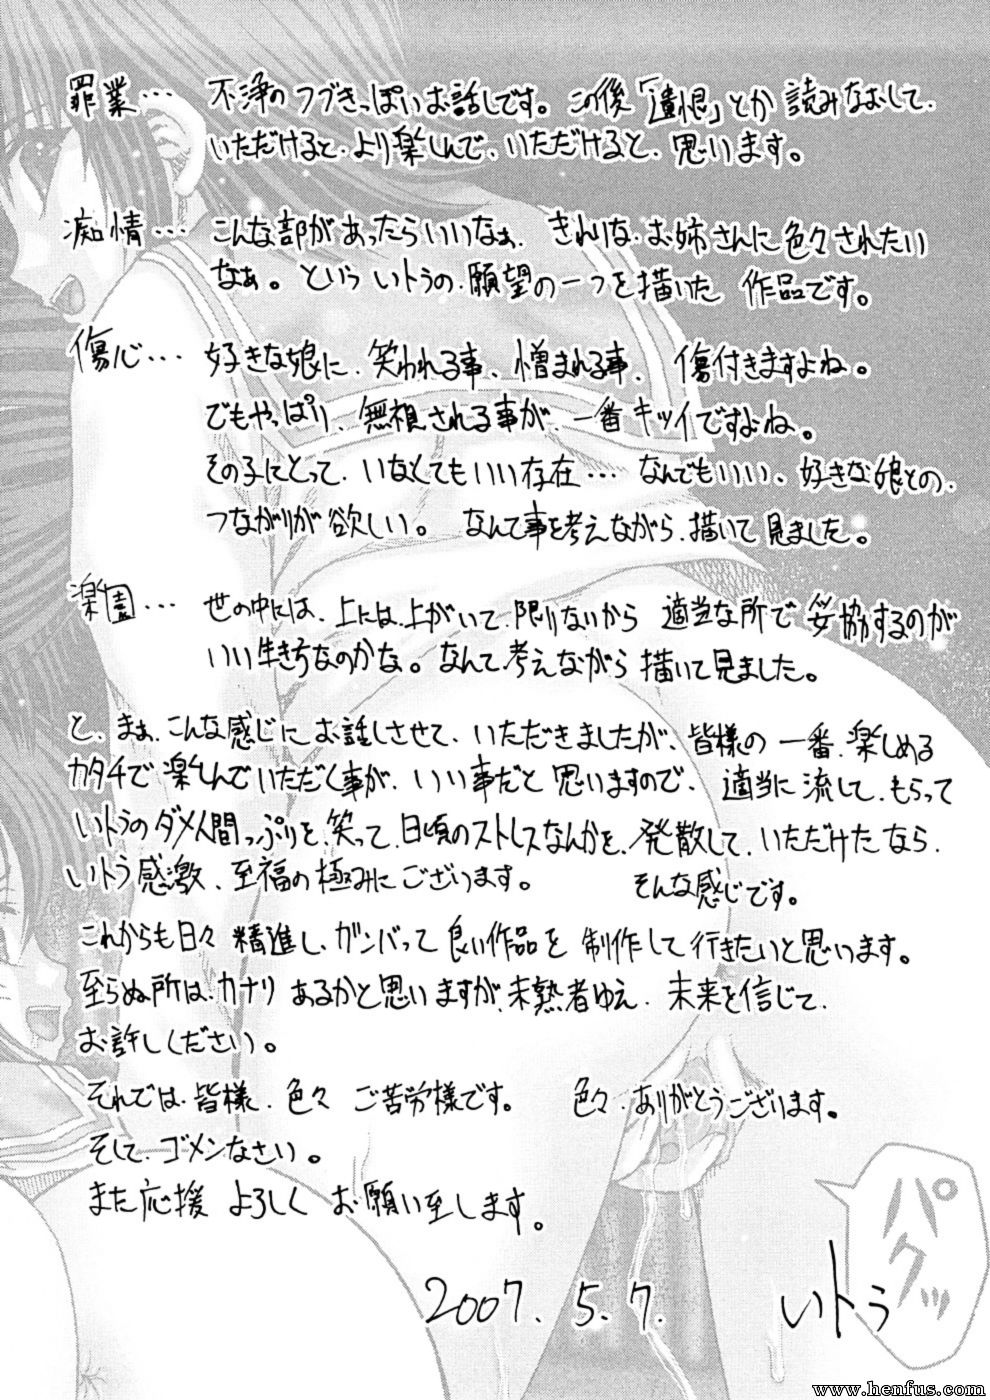 罪業… 不浄のつづきっぽいお話しです。この後「遺恨」とか読みなおして、
いただけると、より楽しんで、いただけると、思います。
痴情… こんな部があったらいいなぁ、きれいな、お姉さんに色々されたい
なぁ。という いトうの、願望の一つを描いた 作品です。
傷心… 好きな娘に、笑われる事、憎まれる事、傷付きますよね。
でもやっぱり、無視される事が、一番キツイですよね。
その子にとって、いなくてもいい存在… なんでもいい、好きな娘との、
つながりが欲しい。なんて事を考えながら、描いて見ました。
楽園… 世の中には、上には、上がいて、限りないから 適当な所で妥協するのが
いい生き方なのかな。なんて考えながら 描いて見ました。
と、まぁ、こんな感じに お話しさせて、いただきましたが、皆様の 一番、楽しめる
カタチで楽しんでいただく事が、いい事だと思いますので、適当に流して、もらって
いトうのダメ人間っぷりを、笑って、日頃のストレスなんかを、発散して、いただけたなら、
いトう感激、至福の極みにございます。 そんな感じです。
これからも日々 精進し、ガンバって 良い作品を 制作して行きたいと思います。
至らぬ所は、カナリ あるかと思いますが、未熟者ゆえ、未来を信じて、
お許しください。
それでは、皆様、色々 ご苦労様です。 色々、ありがとうございます。
そして、ゴメンなさい。
また応援 よろしく お願い至します。
パクッ
2007. 5. 7. いトう
www.henfus.com